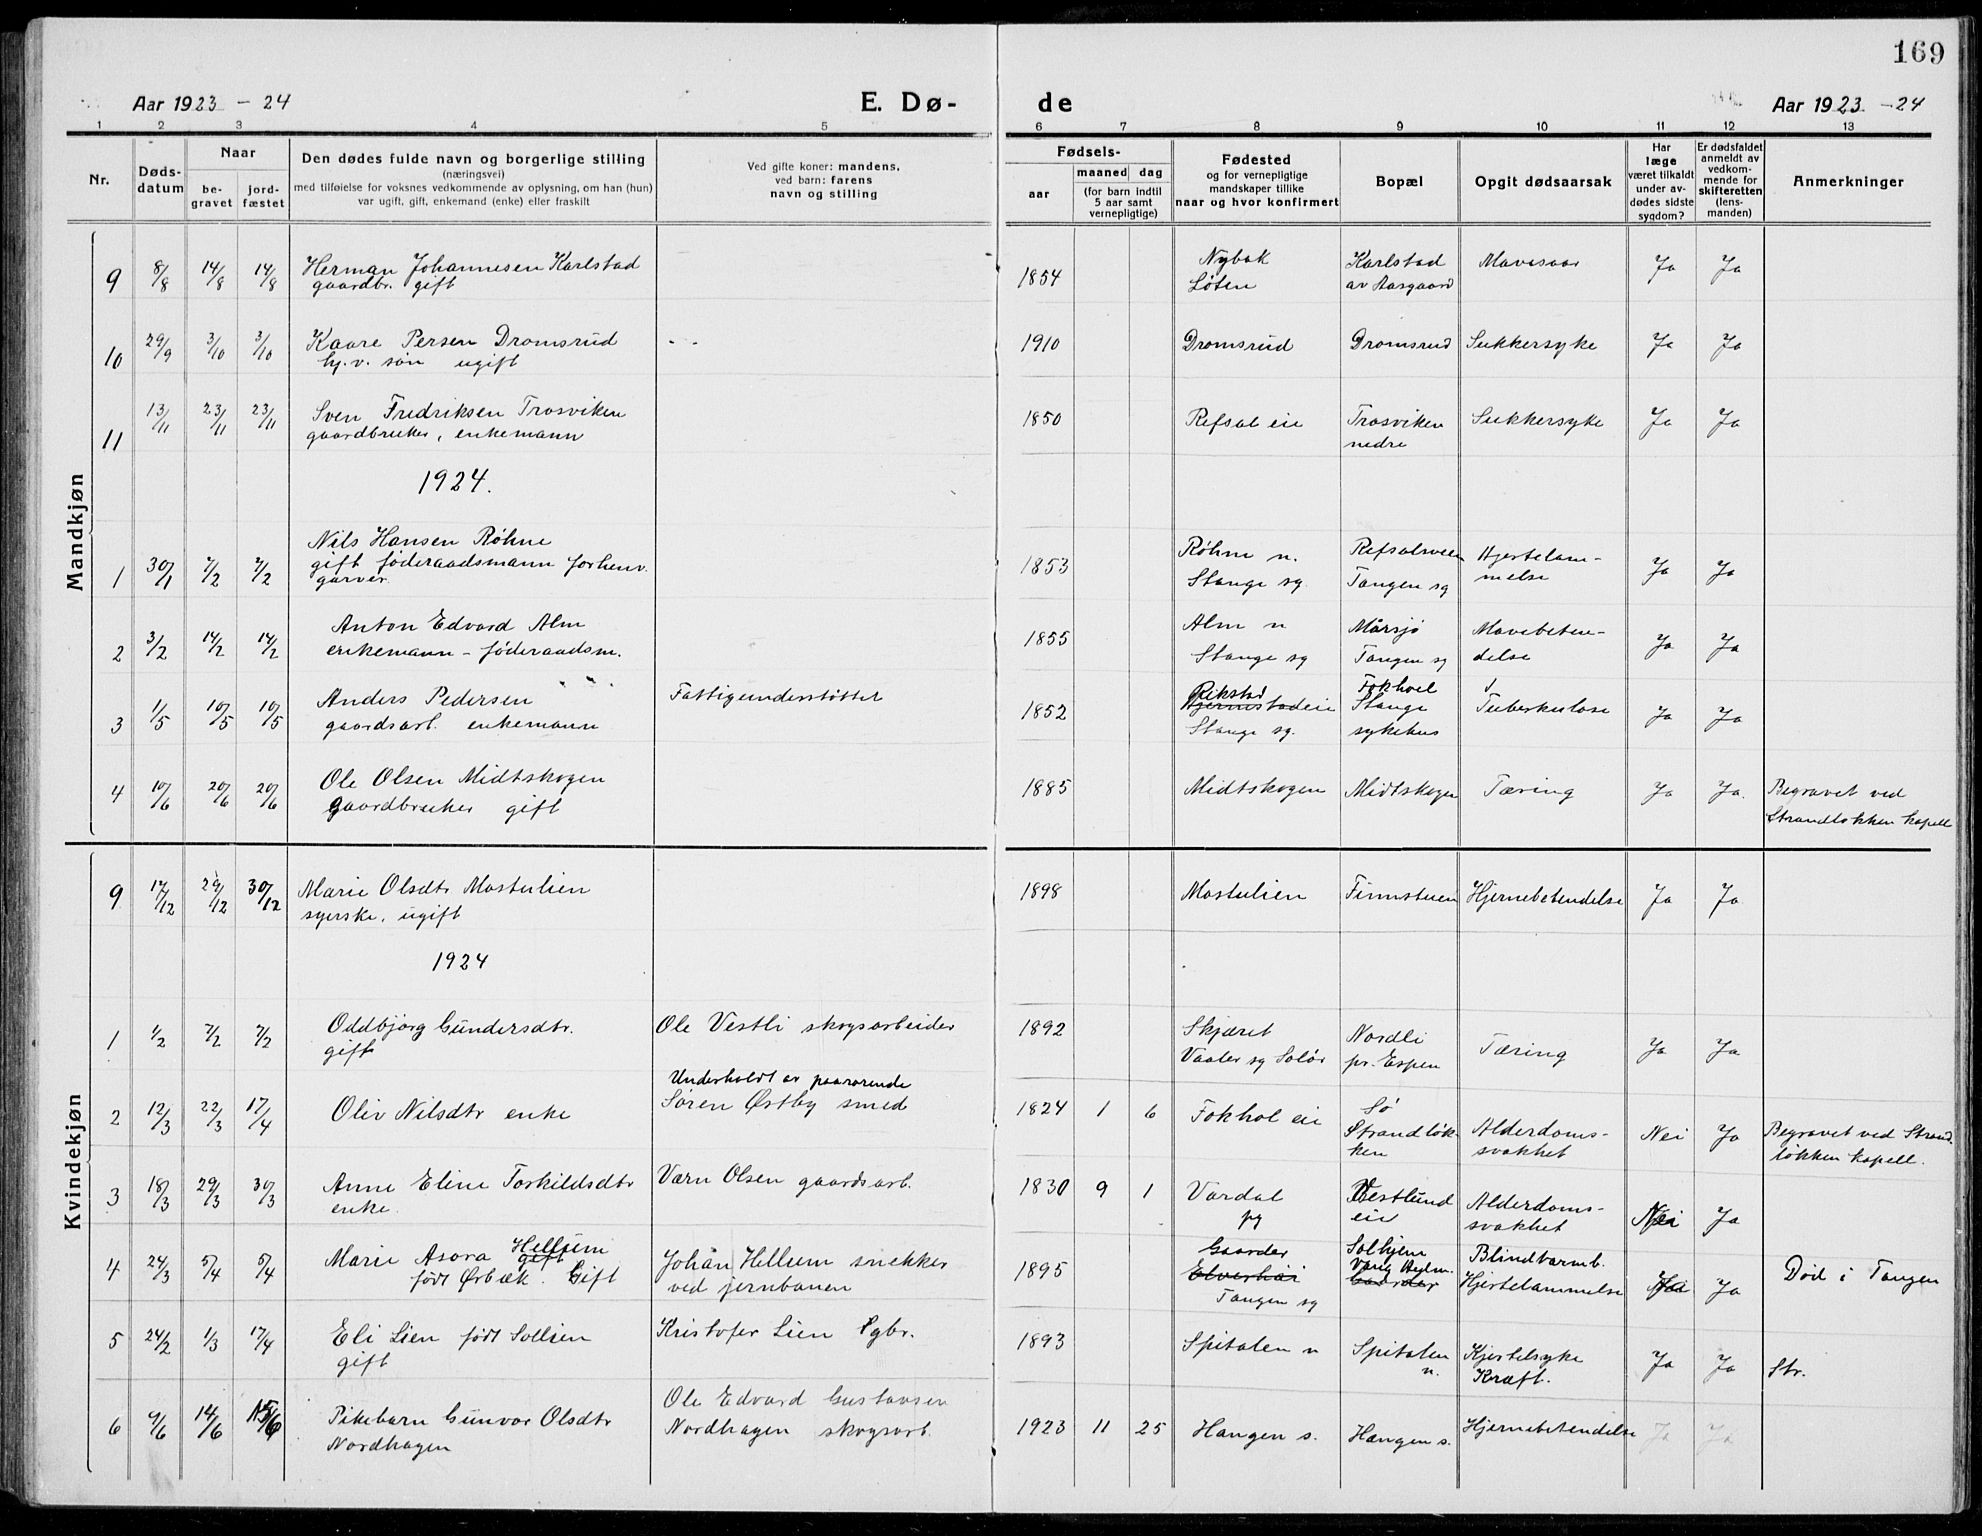 169
Aar 1923 - 24
E. Dø-
de
Aar 1923 - 24
1 2 3 4 5 6 7 8 9 10 11 12 13
Nr.
Døds-
datum
Naar
be-
gravet
jord-
fæstet
Den dødes fulde navn og borgerlige stilling
(næringsvei)
med tilføielse for voksnes vedkommende av oplysning, om han (hun)
var ugift, gift, enkemand (enke) eller fraskilt
Ved gifte koner: mandens,
ved barn: farens
navn og stilling
Fødsels-
aar
maaned dag
(for barn indtil
5 aar samt
vernepligtige)
Fødested
og for vernepligtige
mandskaper tillike
naar og hvor konfirmert
Bopæl
Opgit dødsaarsak
Har
læge
været tilkaldt
under av-
dødes sidste
sygdom?
Er dødsfaldet
anmeldt av
vedkom-
mende for
skifteretten
(lens-
manden)
Anmerkninger
Mandkjøn
9 8/8 14/8 14/8 Herman Johannesen Karlstad 1854 Nybak Karlstad Mavesaar Ja Ja
gaardbr. gift Løten av Aasgaard
10 29/9 3/10 3/10 Kaare Persen Dromsrud 1910 Dromsrud Dromsrud Sukkersyke Ja Ja
hj.v. søn ugift
11 13/11 23/11 23/11 Sven Fredriksen Trosviken 1850 Refsal eie Trosviken Sukkersyke Ja Ja
gaardbruker, enkemann nedre
1924.
1 30/1 7/2 7/2 Nils Hansen Røhne 1853 Røhm n. Refsalsveen Hjertelam- Ja Ja
gift føderaadsmann forhenv. Stange sg. Tangen sg melse
garver.
2 3/2 14/2 14/2 Anton Edvard Alm 1855 Alm n Mårsjø Mavebeten- Ja Ja
enkemann - føderaadsm. Stange sg Tangen sg delse
3 1/5 10/5 10/5 Anders Pedersen Fattigunderstøttet 1852 Rikstad Fokhol Tuberkulose Ja Ja
gaardsarb. enkemann Stange sg. Stange
sykehus
4 10/6 20/6 20/6 Ole Olsen Midtskogen 1885 Midtskogen Midtskogen Tæring Ja Ja. Begravet ved
gaardbruker gift Strandløkken kapell
Kvindekjøn
9 17/12 29/12 30/12 Marie Olsdtr Mostulien 1898 Mostulien Finnstuen Hjernebetendelse Ja Ja
syerske, ugift
1924
1 1/2 7/2 7/2 Oddbjørg Gundersdtr. Ole Vestli skogsarbeider 1892 Skjæret Nordli Tæring Ja Ja
gift Vaaler sg Solør pr. Espen
Underholdt av paarørende
2 12/3 22/3 17/4 Oliv Nilsdtr enke Søren Østby smed 1824 1 6 Fokhol eie Sø Alderdoms- Nei Ja Begravet ved Strand-
Strandløk- svakhet løkken kapell.
ken
3 18/3 29/3 30/3 Anne Eline Torkildsdtr Værn Olsen gaardsarb. 1830 9 1 Vardal Vestlund Alderdoms- Nei Ja
enke. pg eie svakhet
4 24/3 5/4 5/4 Marie Asora Hellum Johan Hellum snekker 1895 Gaarder Solhjem Blindtarmb. Ja Ja Død i Tangen
gift
født Ørbæk. Gift ved jernbanen Elverhøi Vang Hedm. Hjertelammelse
Tangen sg Gaarder
5 24/2 1/3 17/4 Eli Lien født Sollien Kristofer Lien gbr. 1893 Spitalen n Spitalen n. Kjertelsyke Ja Ja Str.
gift Kræft.
6 9/6 14/6 15/6 Pikebarn Gunvor Olsdtr Ole Edvard Gustavsen 1923 11 25 Hangen s. Hangen s. Hjernebetendelse Ja Ja
Nordhagen Nordhagen skogsarb.